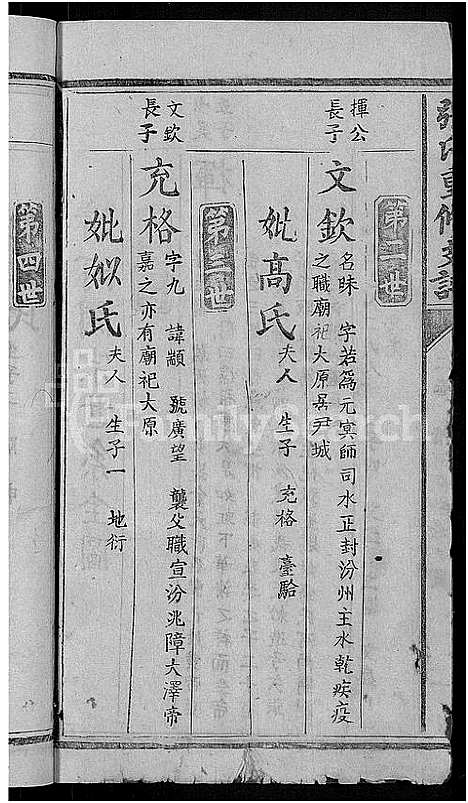 張氏重修支譜
第二世
揮公
長子
文欽
名昧 字若為元寅師司水正封汾州主水乾疾疫
之職廟祀大原居尹城
妣高氏
夫人 生子 充格 臺駘
第三世
文欽
長子
充格
字九 諱顓 號廣望 襲父職宣汾兆障大澤帝
嘉之亦有廟祀大原
妣姒氏
夫人 生子一 地衍
第四世
FamilySearch